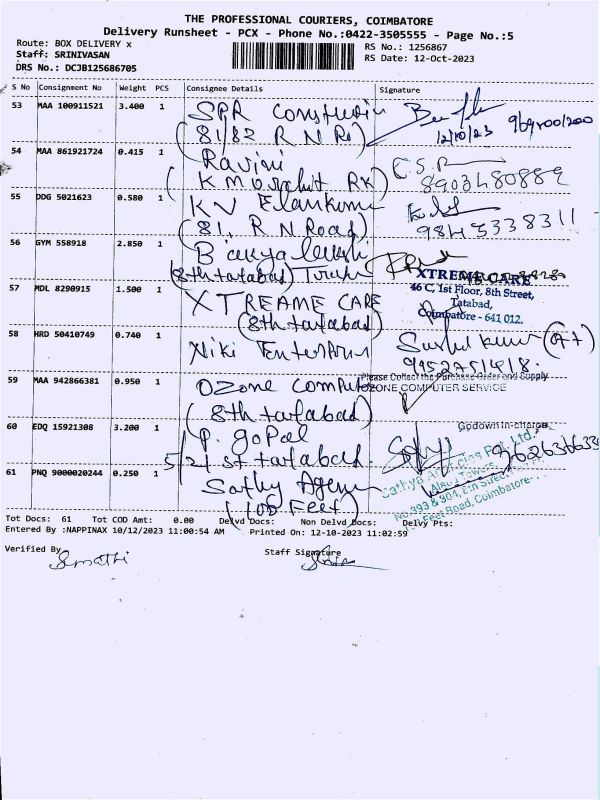 THE PROFESSIONAL COURIERS, COIMBATORE
Delivery Runsheet - PCX - Phone No.:0422-3505555 - Page No.:5
Route: BOX DELIVERY x
RS No.: 1256867
Staff: SRINIVASAN
RS Date: 12-Oct-2023
DRS No.: DCJB125686705
S No Consignment No Weight PCS Consignee Details Signature
53 MAA 100911521 3.400 1 SPR
(81/82 R N R) 12/10/23
54 MAA 861921724 0.415 1 Ravini C.S.R
8903480889
55 DDG 5021623 0.580 1 KV
(81, R N Road) 9845338311
56 GYM 558918 2.850 1
(8th tatabad)
XTREME CARE
46 C, 1st Floor, 8th Street,
Tatabad,
Coimbatore - 641 012.
57 MDL 8290915 1.500 1 XTREAME CARE
(8th tatabad)
58 HRD 50410749 0.740 1 Niki
9952751418.
59 MAA 942866381 0.950 1 Ozone
Please Collect the Purchase Order and Supply
OZONE COMPUTER SERVICE
(8th tatabad)
60 EDQ 15921308 3.200 1 P. goPal
Godown in-charge
5/2 1st tatabad
61 PNQ 9000020244 0.250 1 Sathy Agen
No.393 & 304, Coimbatore-
(100 Feet)
Tot Docs: 61 Tot COD Amt: 0.00 Delvd Docs: Non Delvd Docs: Delvy Pts:
Entered By :NAPPINAX 10/12/2023 11:00:54 AM Printed On: 12-10-2023 11:02:59
Verified By Staff Signature